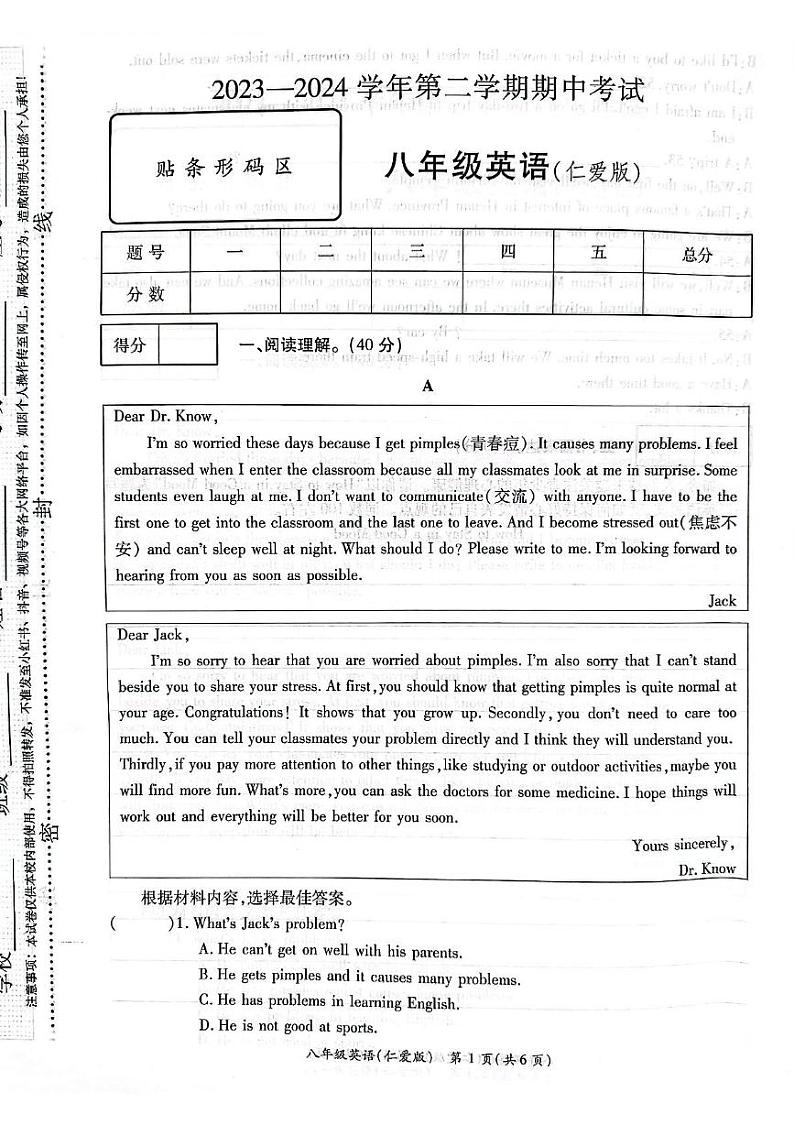 2023—2024 学年第二学期期中考试
贴条形码区
八年级英语(仁爱版)
题号 一 二 三 四 五 总分
分数
得分
一、阅读理解。(40 分)
A
Dear Dr. Know,
I'm so worried these days because I get pimples(青春痘). It causes many problems. I feel
embarrassed when I enter the classroom because all my classmates look at me in surprise. Some
students even laugh at me. I don't want to communicate(交流) with anyone. I have to be the
first one to get into the classroom and the last one to leave. And I become stressed out(焦虑不
安) and can't sleep well at night. What should I do? Please write to me. I'm looking forward to
hearing from you as soon as possible.
Jack
Dear Jack,
I'm so sorry to hear that you are worried about pimples. I'm also sorry that I can't stand
beside you to share your stress. At first,you should know that getting pimples is quite normal at
your age. Congratulations! It shows that you grow up. Secondly,you don't need to care too
much. You can tell your classmates your problem directly and I think they will understand you.
Thirdly,if you pay more attention to other things,like studying or outdoor activities,maybe you
will find more fun. What's more,you can ask the doctors for some medicine. I hope things will
work out and everything will be better for you soon.
Yours sincerely,
Dr. Know
根据材料内容,选择最佳答案。
( )1. What's Jack's problem?
A. He can't get on well with his parents.
B. He gets pimples and it causes many problems.
C. He has problems in learning English.
D. He is not good at sports.
八年级英语(仁爱版) 第 1 页(共 6 页)
学校
班级
密
封
线
注意事项:本试卷仅供本校内部使用,不得拍照转发,不准发至小红书、抖音、视频号等各大网络平台,如因个人操作传至网上,属侵权行为,造成的损失由您个人承担!